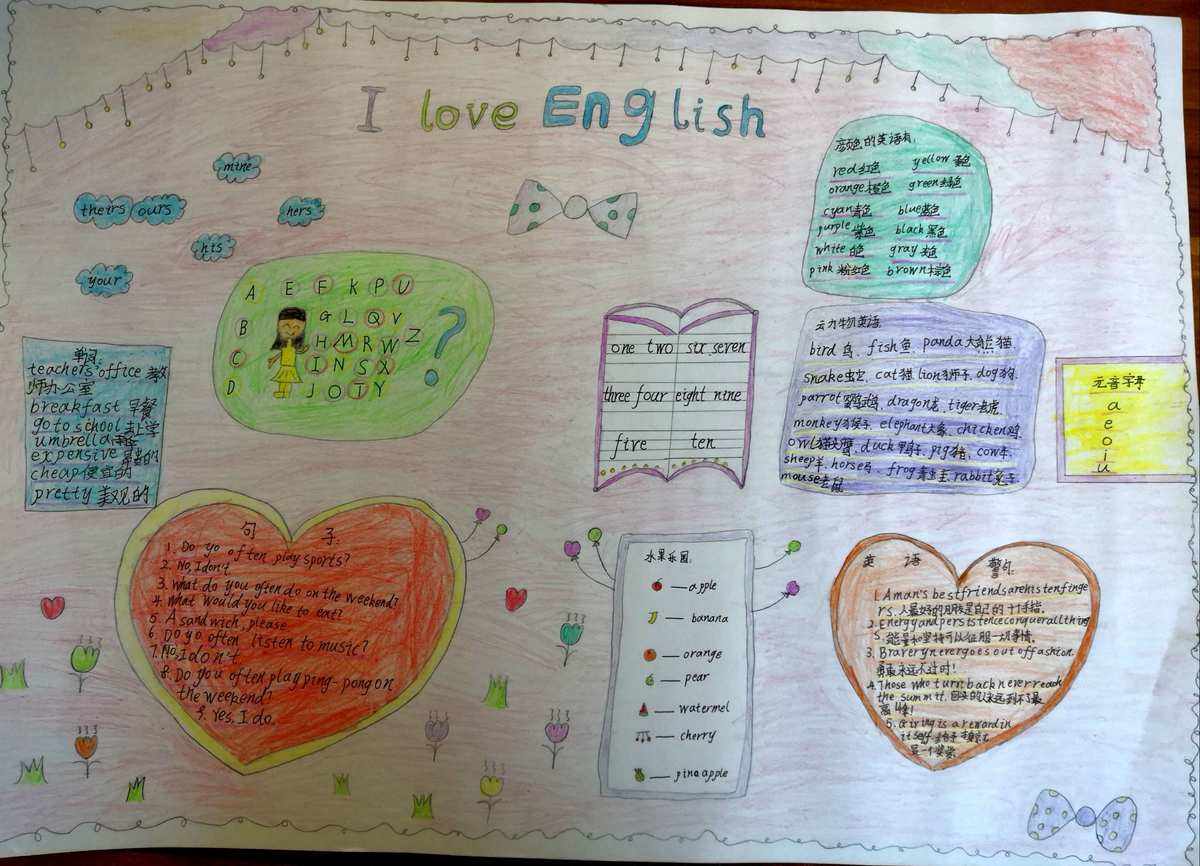 I love English
mine
theirs ours
hers
his
your
A E F K P U
B G L Q V
H M R W Z
C I N S X
D J O T Y
?
单词:
teachers' office 教
师办公室
breakfast 早餐
go to school 去上学
umbrella
expensive 昂贵的
cheap 便宜的
pretty 美观的
one two six seven
three four eight nine
five ten
颜色的英语有:
red 红色 yellow 黄色
orange 橙色 green 绿色
cyan 青色 blue 蓝色
purple 紫色 black 黑色
white 白色 gray 灰色
pink 粉红色 brown 棕色
动物英语:
bird 鸟, fish 鱼, panda 大熊猫
snake 蛇, cat 猫 lion 狮子, dog 狗,
parrot 鹦鹉, dragon 龙, tiger 老虎
monkey 猴子, elephant 大象, chicken 鸡,
owl 猫头鹰, duck 鸭子, pig 猪, cow 牛,
sheep 羊, horse 马, frog 青蛙, rabbit 兔子,
mouse 老鼠
元音字母
a
e
o
i
u
句 子:
1. Do yo often play sports?
2. No, I don't
3. what do you often do on the weekend?
4. what would you like to eat?
5. A sandwich, please
6. Do yo often listen to music?
7. No, I don't.
8. Do you often play ping-pong on
the weekend?
9. Yes, I do.
水果乐园:
apple
banana
orange
pear
watermel
cherry
pineapple
英 语 警句
1. A man's best friends are his ten finge
rs. 人最好的朋友是自己的十个手指.
2. Energy and persistence conquer all thing
s. 能量和坚持可以征服一切事情.
3. Bravery never goes out of fashion.
勇敢永远不过时!
4. Those who turn back never reach
the summit. 回头的人永远到不了最
高峰!
5. Giving is a reward in
itself.
是一个奖赏